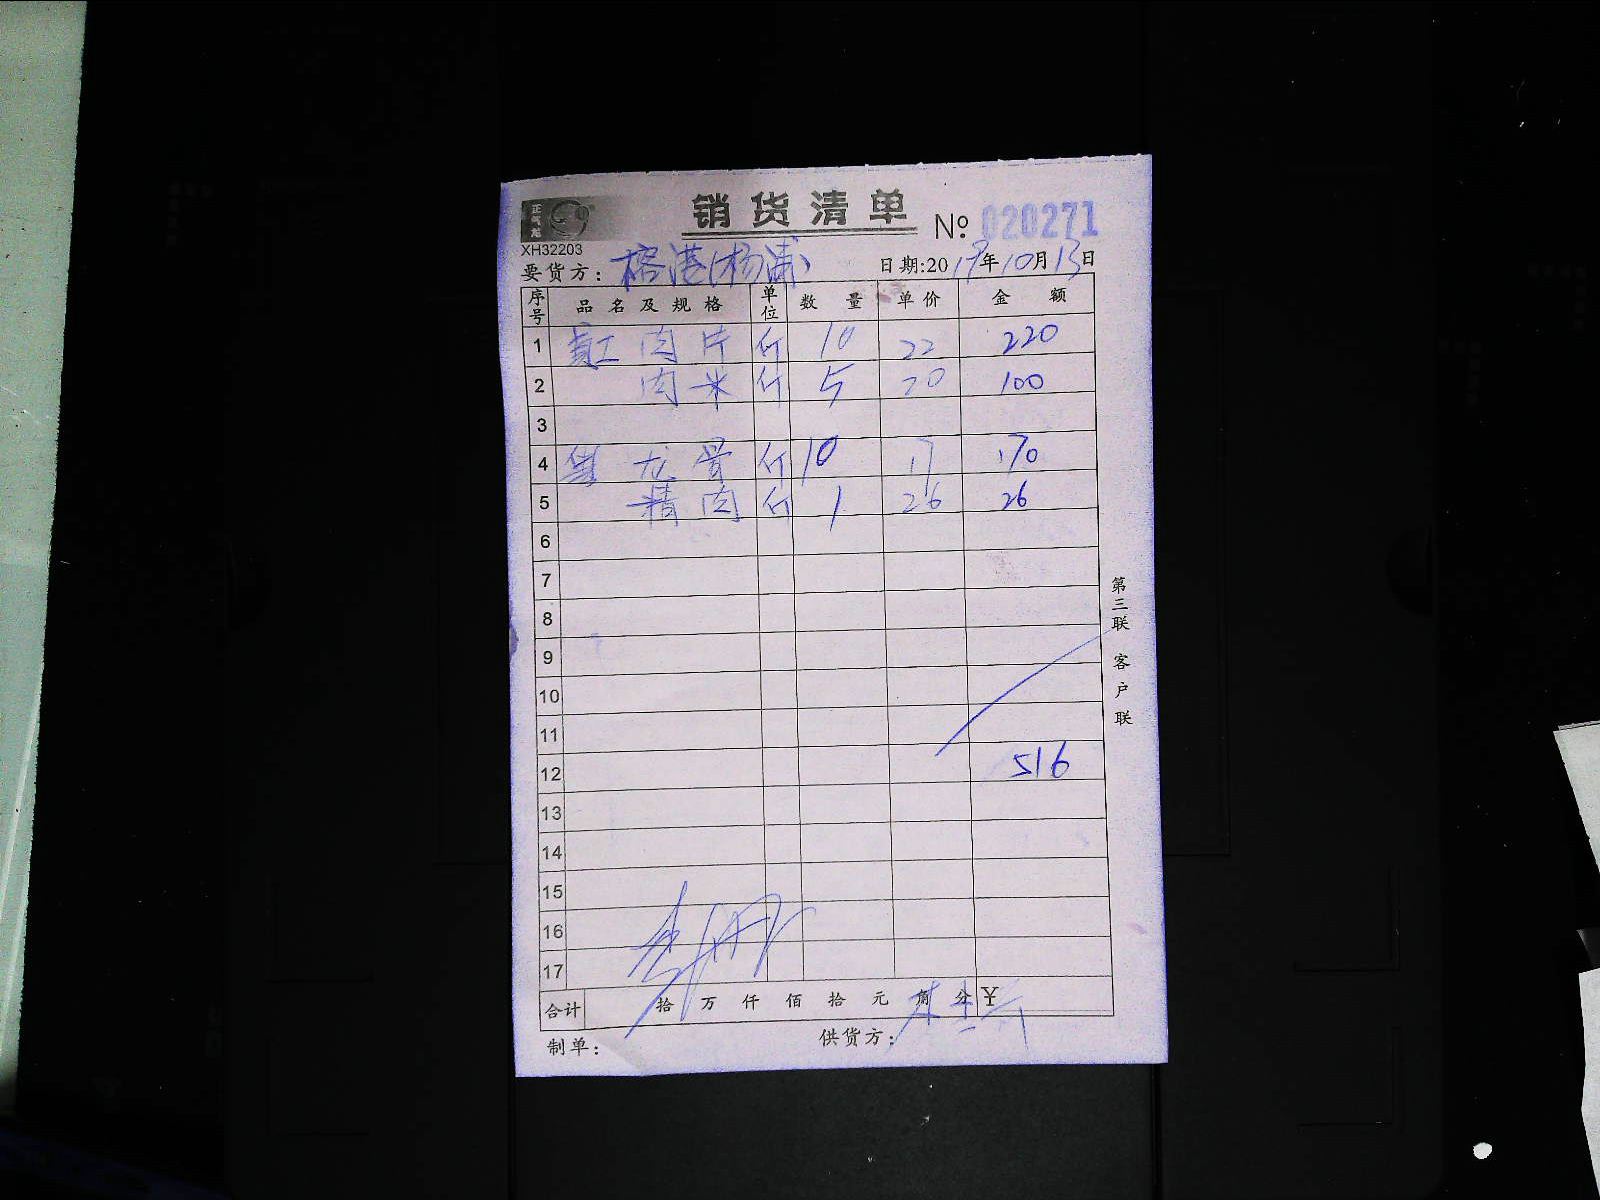 正气龙
销货清单
№ 020271
XH32203
要货方: 榕港(杨浦) 日期:2019年10月13日
序号 品名及规格 单位 数量 单价 金额
1 肉片 斤 10 22 220
2 肉米 斤 5 20 100
3
4 龙骨 斤 10 17 170
5 精肉 斤 1 26 26
6
7
8
9
10
11
12 516
13
14
15
16
17
合计 拾万仟佰拾元角分 ¥
制单: 供货方:
第三联 客户联